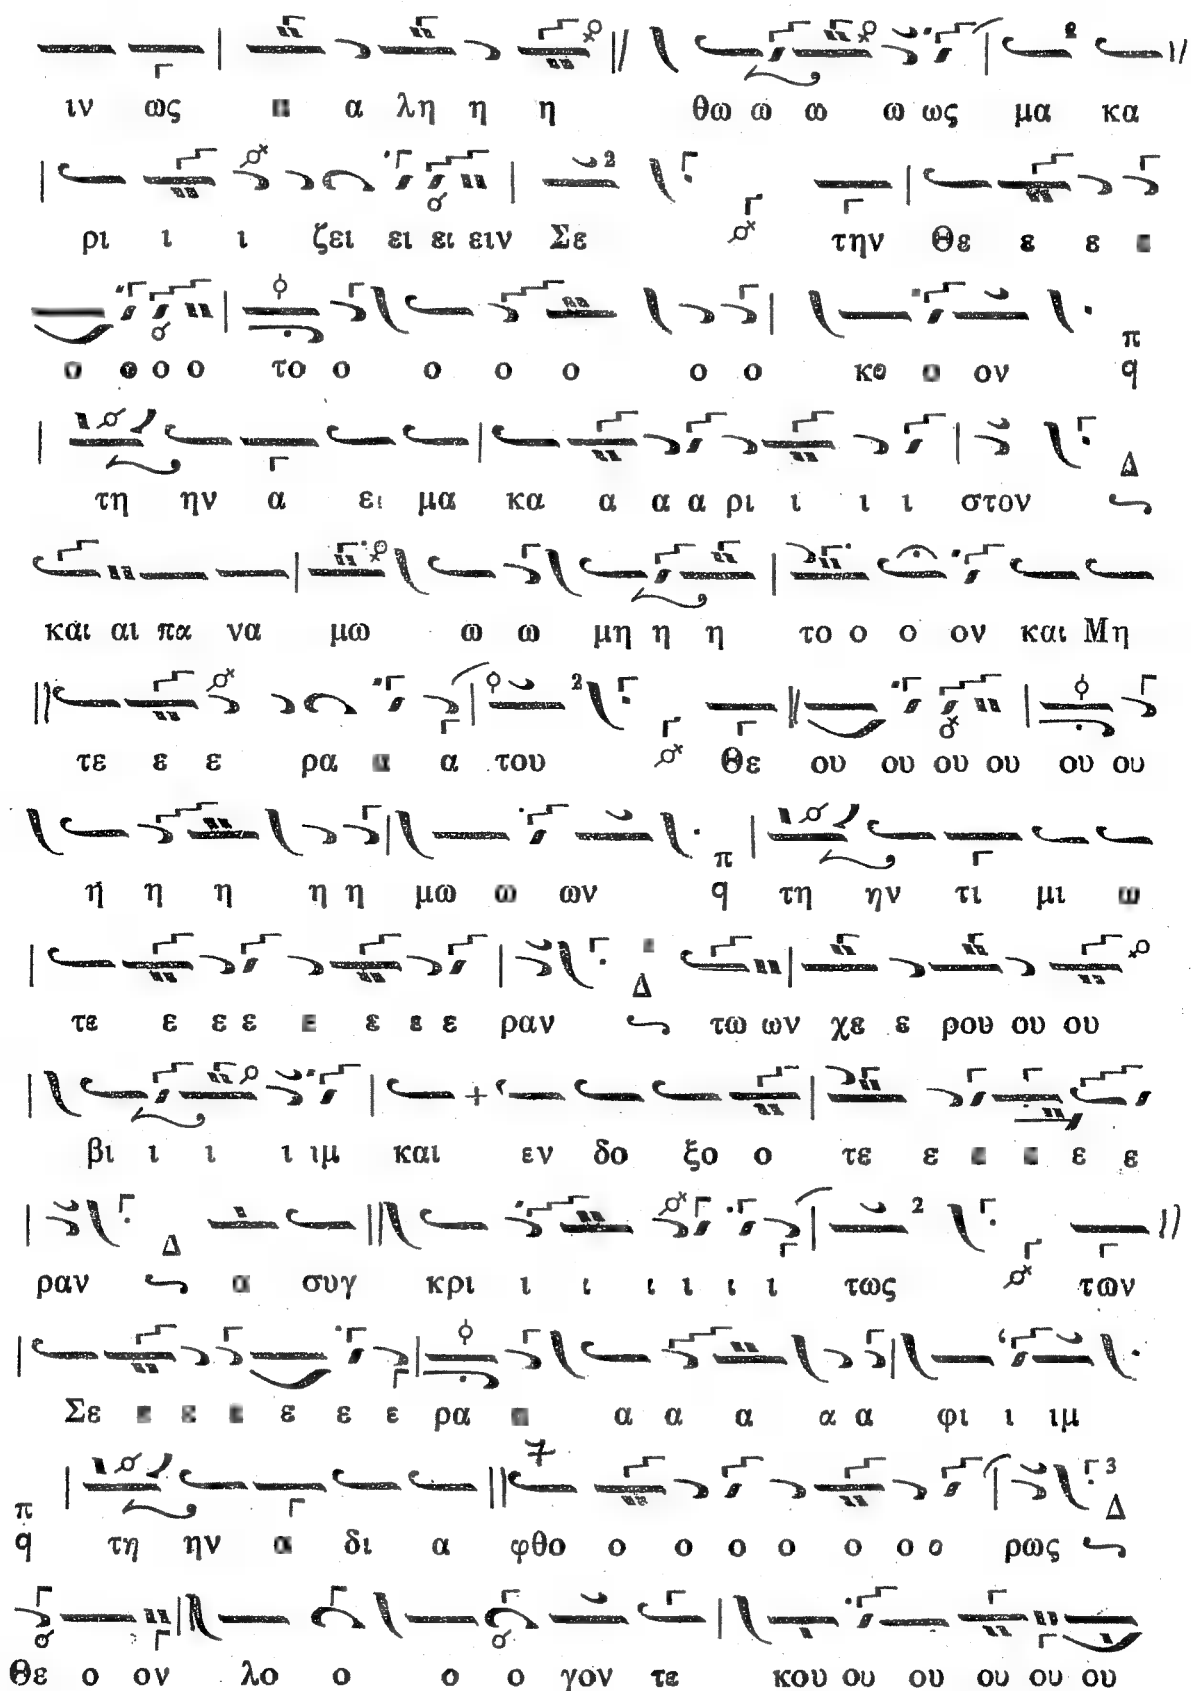 ιν ως α λη η η θω ω ω ω ως μα κα
ρι ι ι ζει ει ει ειν Σε την Θε ε ε
ο ο ο το ο ο ο ο ο ο κο ον π q
τη ην α ει μα κα α α α ρι ι ι ι στον Δ
και αι πα να μω ω ω μη η η το ο ο ον και Μη
τε ε ε ρα α του Θε ου ου ου ου ου ου
η η η η η μω ων π q τη ην τι μι
τε ε ε ε ε ε ε ραν Δ τω ων χε ε ρου ου ου
βι ι ι ι ιμ και εν δο ξο ο τε ε ε ε
ραν Δ συγ κρι ι ι ι ι ι ι τως των
Σε ε ε ε ρα α α α α α φι ι ιμ
π q τη ην δι α φθο ο ο ο ο ο ο ο ρως Δ
Θε ο ον λο ο ο ο γον τε κου ου ου ου ου ου